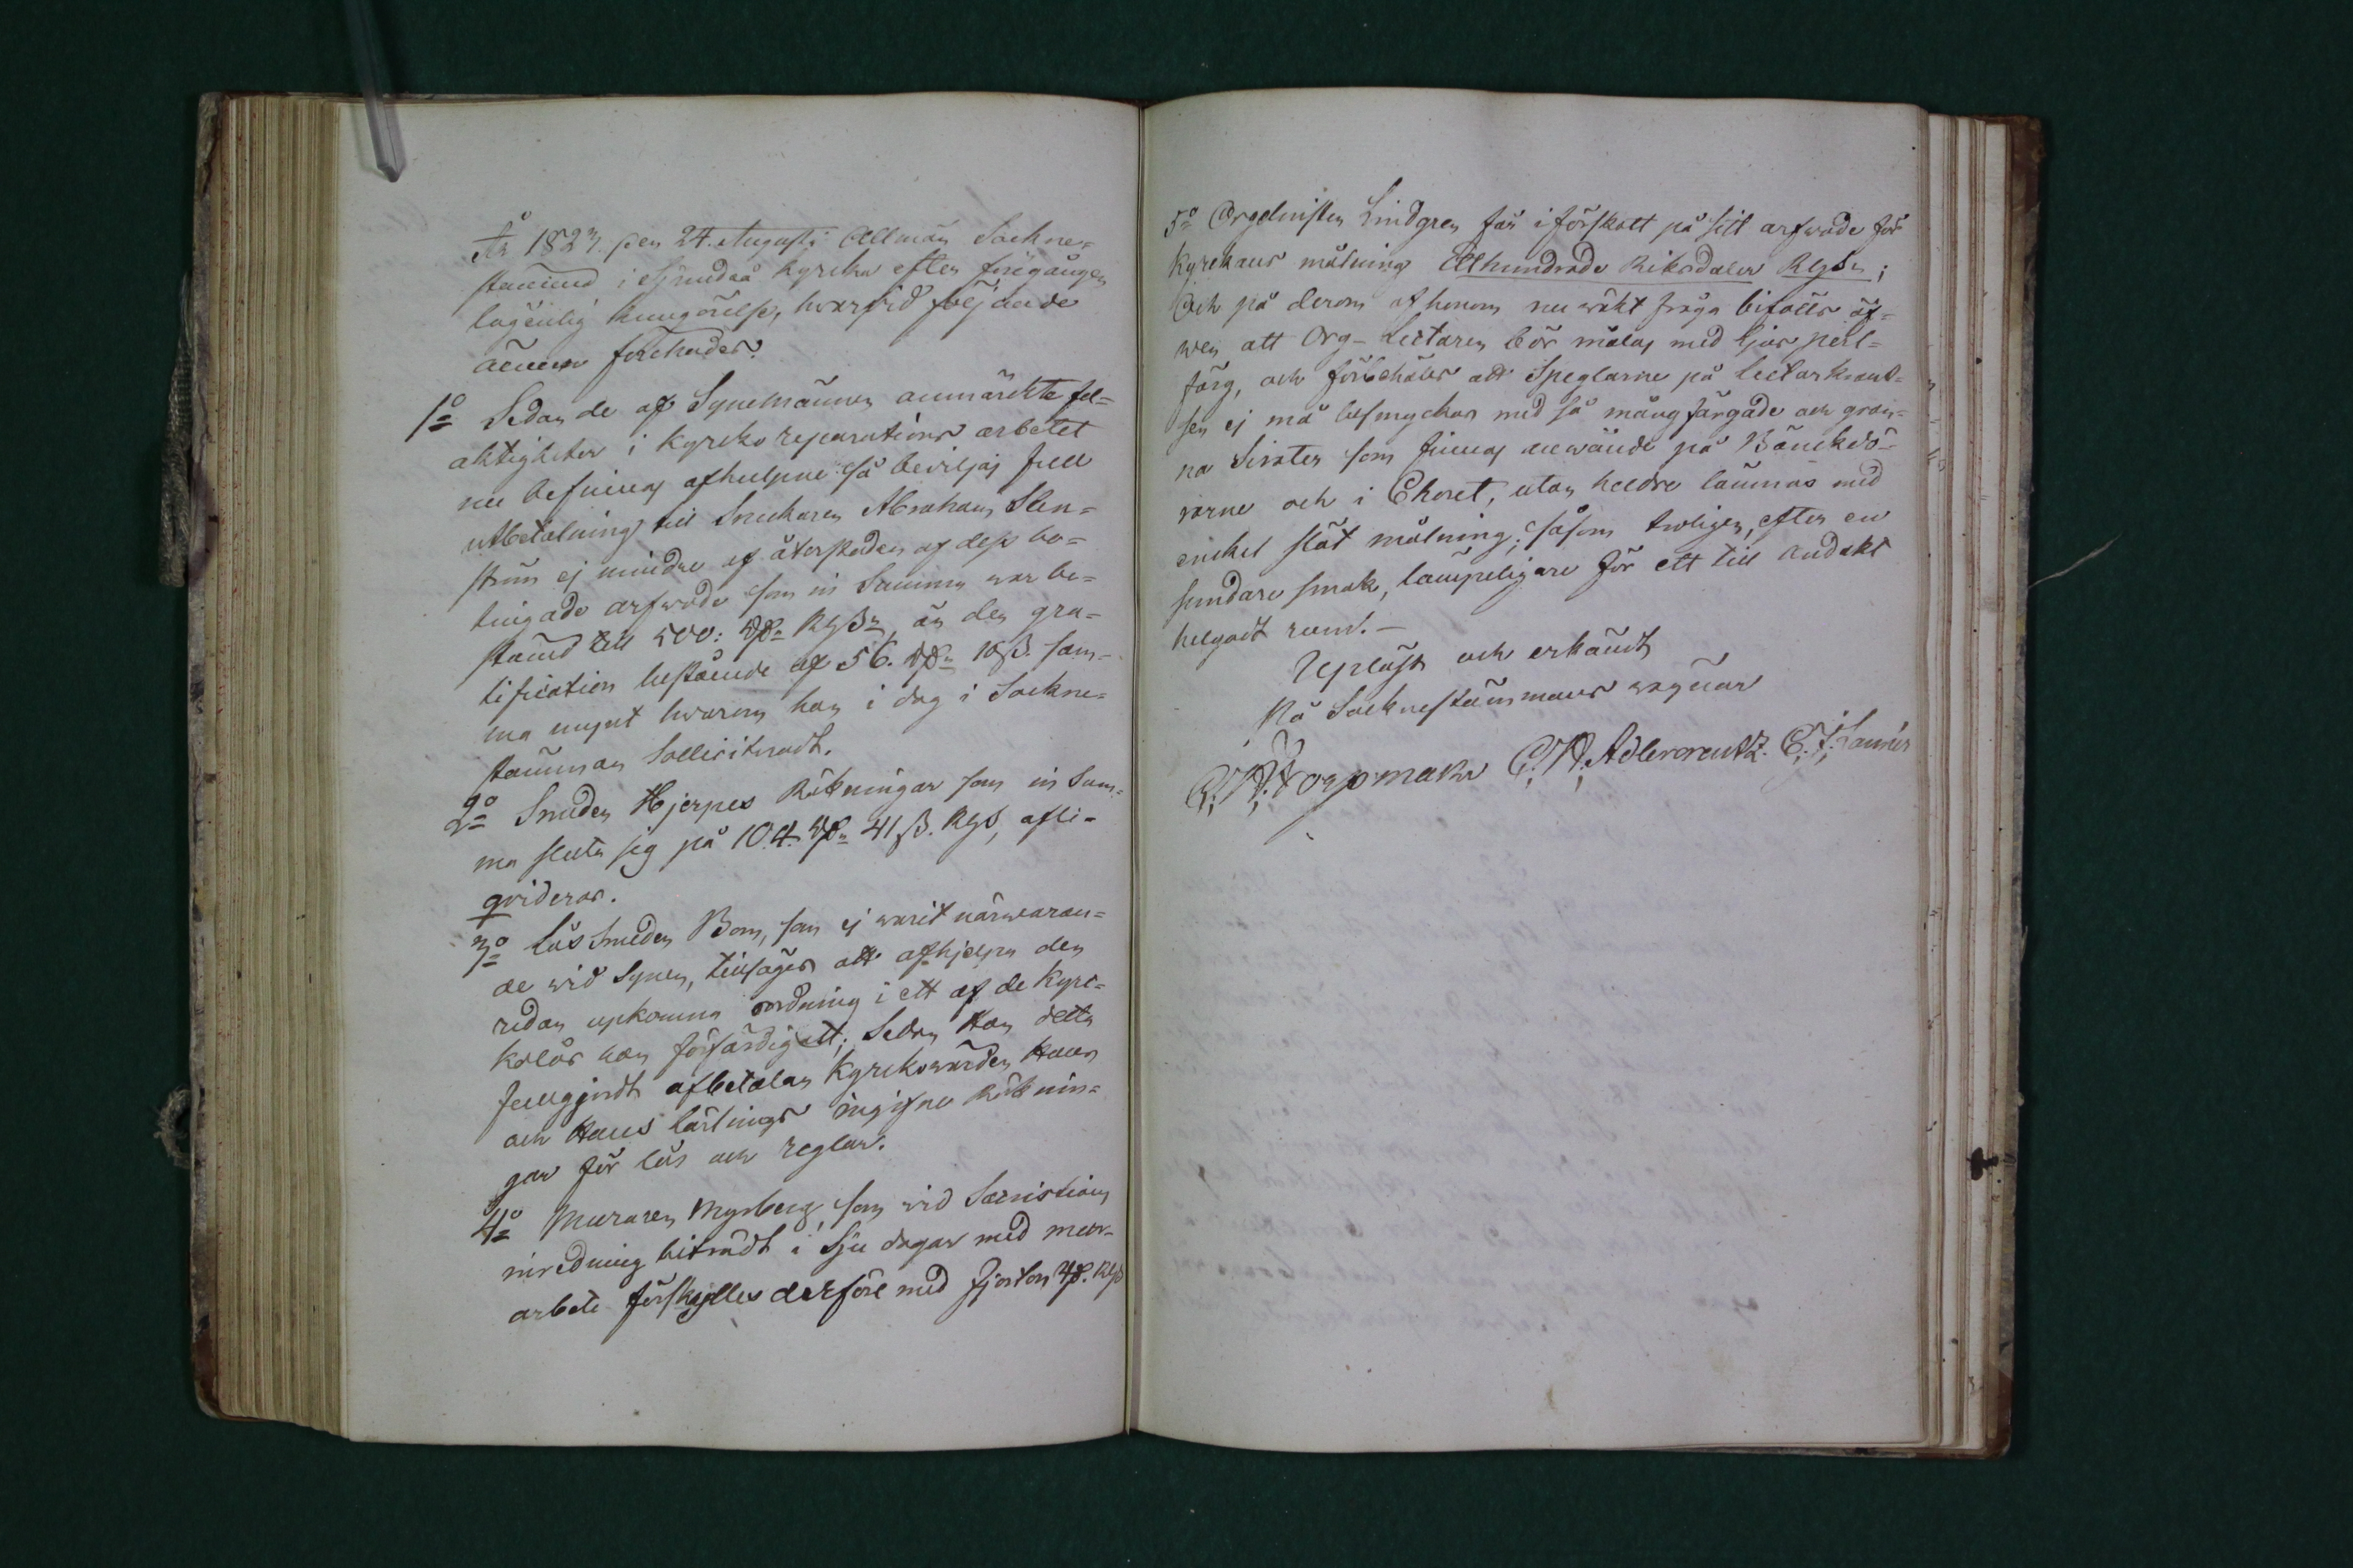 År 1823. den 24. Augusti Allmän Sockne-
stämma i Grundsö kyrka efter föregången
lagenlig kungörelse, hvarvid följande
ämnen förehades.
1o Sedan de af Synemännen anmärkte fel-
aktigheter i kyrko reparations arbetet
nu befinnas afhulpne så beviljas full
utbetalning till Snickaren Abraham Sten-
ström ej mindre af återstoden af dess be-
tingade arfvode som in Summa war be-
stämd till 500: Rdr Rgßn, än den gra-
tification bestående af 56. Rdr 10ß. sam-
ma mynt hvarom han i dag i Sockne-
stämman Solliciteradt.
2o Smeden Hjerpes Räkningar som in Sum-
ma sluta sig på 104. Rdr 41ß. Rgs, afli-
qvideras.
3o Låssmeden Bom, som ej warit närwaran-
de wid Synen, tillsäges att afhjelpa den
redan upkomna oordning i ett af de Kyrc-
kolås han förfärdigatt; Sedan Han detta
fullgjordt afbetalas Kyrkovärden Hans
och Hans lärlings ingifne Räknin-
gar för lås och reglar.
4o Muraren Myrberg som vid Sacristians
inredning biträdt i Sju dagar med mur-
arbete förskylles derföre med fjorton Rd. Rgs
5o Orgelnisten Lindgren får i förskott på sitt arfwode för
Kyrckans målning Ett hundrade Riksdaler Rgsn;
Och på derom af honom nu wäkt fråga bifalles äf-
wen att Org-Lectaren bör målas med ljus perl-
färg, och förbehåles att Speglarne på Lectarkrant-
sen ej må besmyckas med så mång färgade och gran-
na Sirater som finnas använde på Bänckdö-
rarne och i Choret, utan heldre lämnas med
enckel slät målning; såsom troligen, efter en
sundare smak, lämpeligare för ett till andakt
helgadt rum.-
Upläst och erkändt
På Socknestämmans wägnar
C. A. Adlercreutz. C. J.